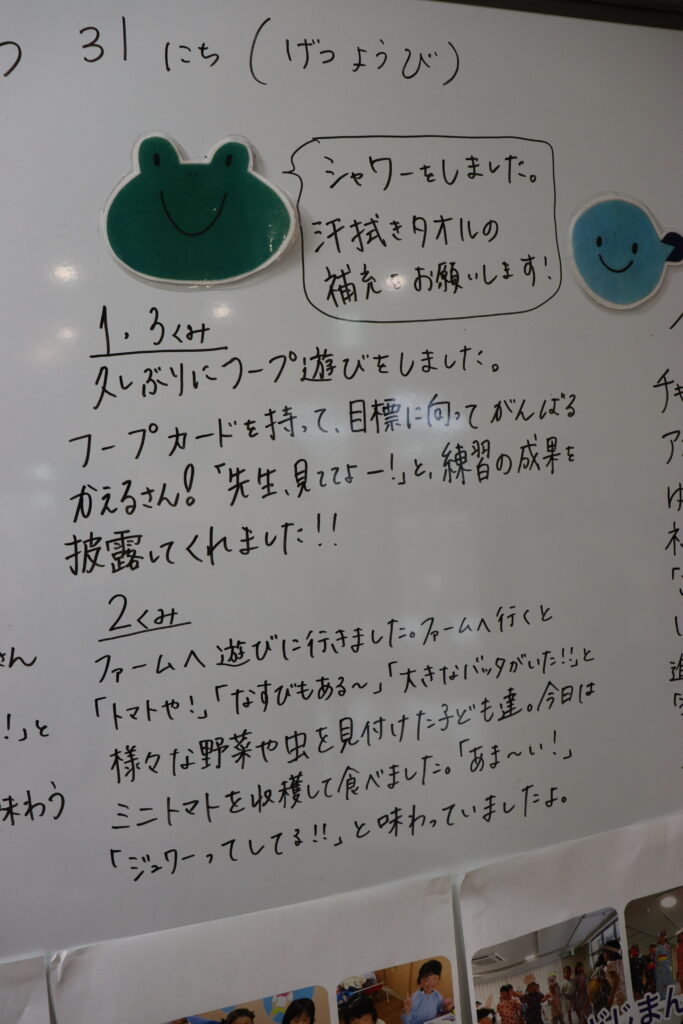 31 にち (げつようび)
シャワーをしました。
汗拭きタオルの
補充をお願いします!
1、3くみ
久しぶりにフープ遊びをしました。
フープカードを持って、目標に向ってがんばる
かえるさん!「先生、見ててよー!」と、練習の成果を
披露してくれました!!
2くみ
ファームへ遊びに行きました。ファームへ行くと
「トマトや!」「なすびもある〜」「大きなバッタがいた!!」と
様々な野菜や虫を見付けた子ども達。今日は
ミニトマトを収穫して食べました。「あま〜い!」
「ジュワーってしてる!!」と味わっていましたよ。
さん
!」と
味わう